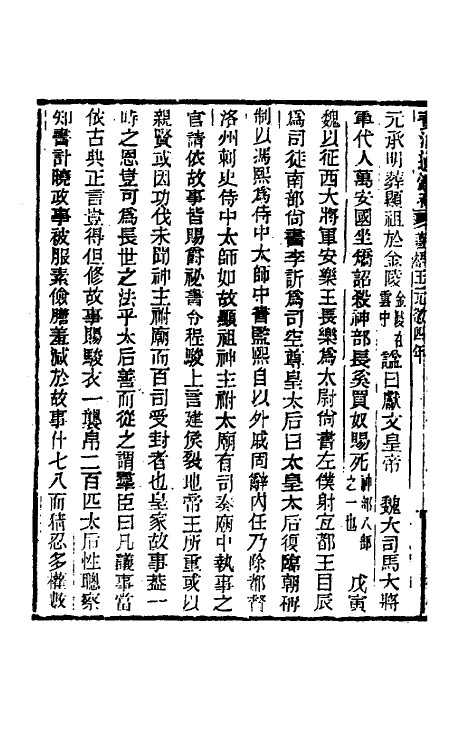 元承明葬顯祖於金陵金陵在雲中諡曰獻文皇帝　魏大司馬大將
軍代人萬安國坐矯詔殺神部長奚買奴賜死神部八部之一也　戊寅
魏以征西大將軍安樂王長樂爲太尉尚書左僕射宜都王目辰
爲司徒南部尚書李訢爲司空尊皇太后曰太皇太后復臨朝稱
制以馮熙爲侍中太師中書監熙自以外戚固辭內任乃除都督
洛州刺史侍中太師如故顯祖神主祔太廟有司奏廟中執事之
官請依故事皆賜爵祕書令程駿上言建侯裂地帝王所重或以
親賢或因功伐未聞神主祔廟而百司受封者也皇家故事蓋一
時之恩豈可爲長世之法乎太后善而從之謂羣臣曰凡議事當
依古典正言豈得但修故事賜駿衣一襲帛二百匹太后性聰察
知書計曉政事被服素儉膳羞減於故事什七八而猜忍多權數